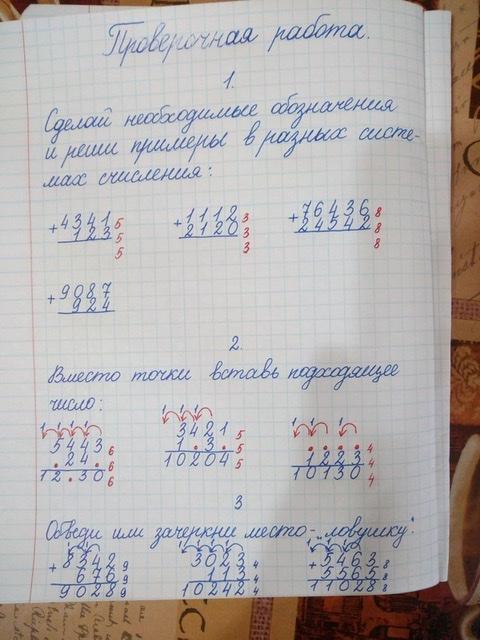 Проверочная работа.
1.
Сделай необходимые обозначения
и реши примеры в разных систе-
мах счисления:
+ 4341 5
123 5
5
+ 1112 3
2120 3
3
+ 76436 8
24542 8
8
+ 9087
924
2.
Вместо точки вставь подходящее
число:
1 1 1 1
5443 6
.24. 6
12.30 6
1 1 1
3421 5
1.3. 5
10204 5
1 1 1
.... 4
1223 4
10130 4
3
Обведи или зачеркни место-„ловушку":
+ 8342 9
676 9
9028 9
3023 4
113 4
10242 4
+ 5463 8
5565 8
11028 8